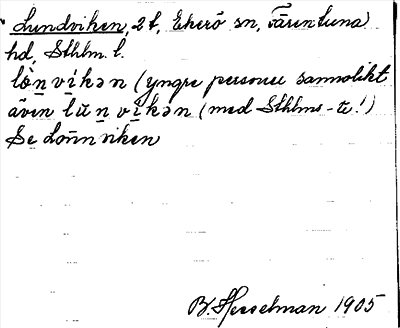 Lundviken, 2 t, Ekerö sn, Färentuna
hd, Sthlm. l.
lönvikən (yngre personer sannolikt
även lūnvikən (med Sthlms-te!)
Se Lönnviken
B. Hesselman 1905